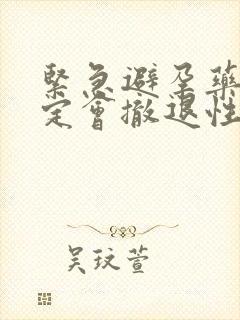 緊急避孕藥
定會撤退性
吳玟萱